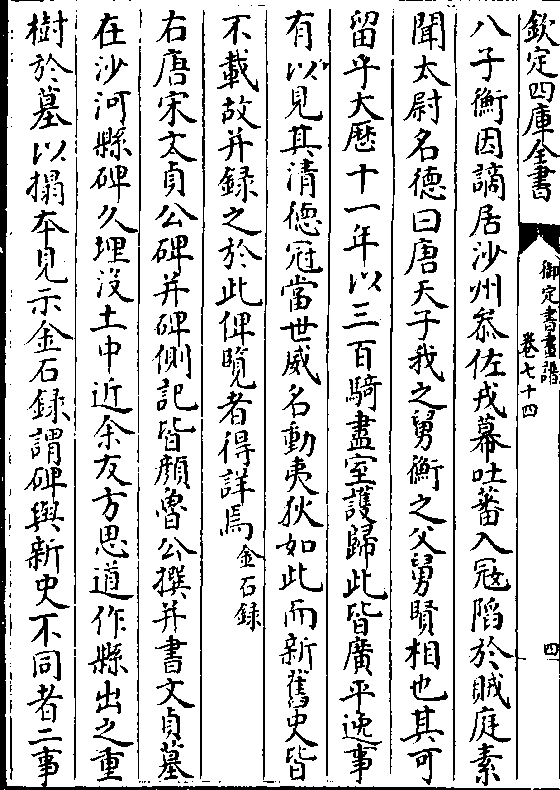 欽定四庫全書
御定書畫譜
卷七十四
四
八子衡因謫居沙州叅佐戎幕吐蕃入寇䧟於賊庭素
聞太尉名德曰唐天子我之舅衡之父舅賢相也其可
留乎大厯十一年以三百騎盡室護歸此皆廣平逸事
有以見其清德冠當世威名動夷狄如此而新舊史皆
不載故并録之於此俾覽者得詳焉金石録
右唐宋文貞公碑并碑側記皆顔魯公撰并書文貞墓
在沙河縣碑久埋沒土中近余友方思道作縣出之重
樹於墓以搨本見示金石録謂碑與新史不同者二事